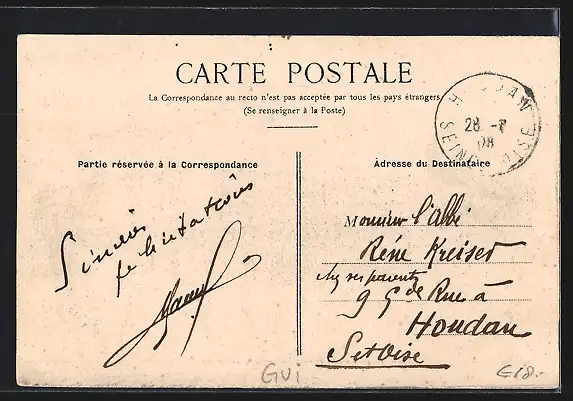 CARTE POSTALE
La Correspondance au recto n'est pas acceptée par tous les pays étrangers
(Se renseigner à la Poste)
HOUDAN
28 -7
08
SEINE-ET-OISE
Partie réservée à la Correspondance
Adresse du Destinataire
Sincères
félicitations
Monsieur l'abbé
Réné Kreiser
chez ses parents
9 Gde Rue à
Houdan
S et Oise
GUI
€18.-